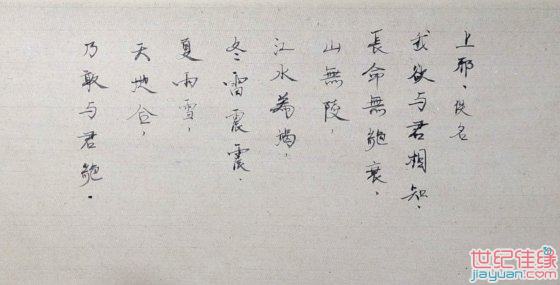 上邪、佚名
我欲与君相知，
長命無絕衰，
山無陵，
江水為竭，
冬雷震震，
夏雨雪，
天地合，
乃敢与君絕．
世纪佳缘
jiayuan.com